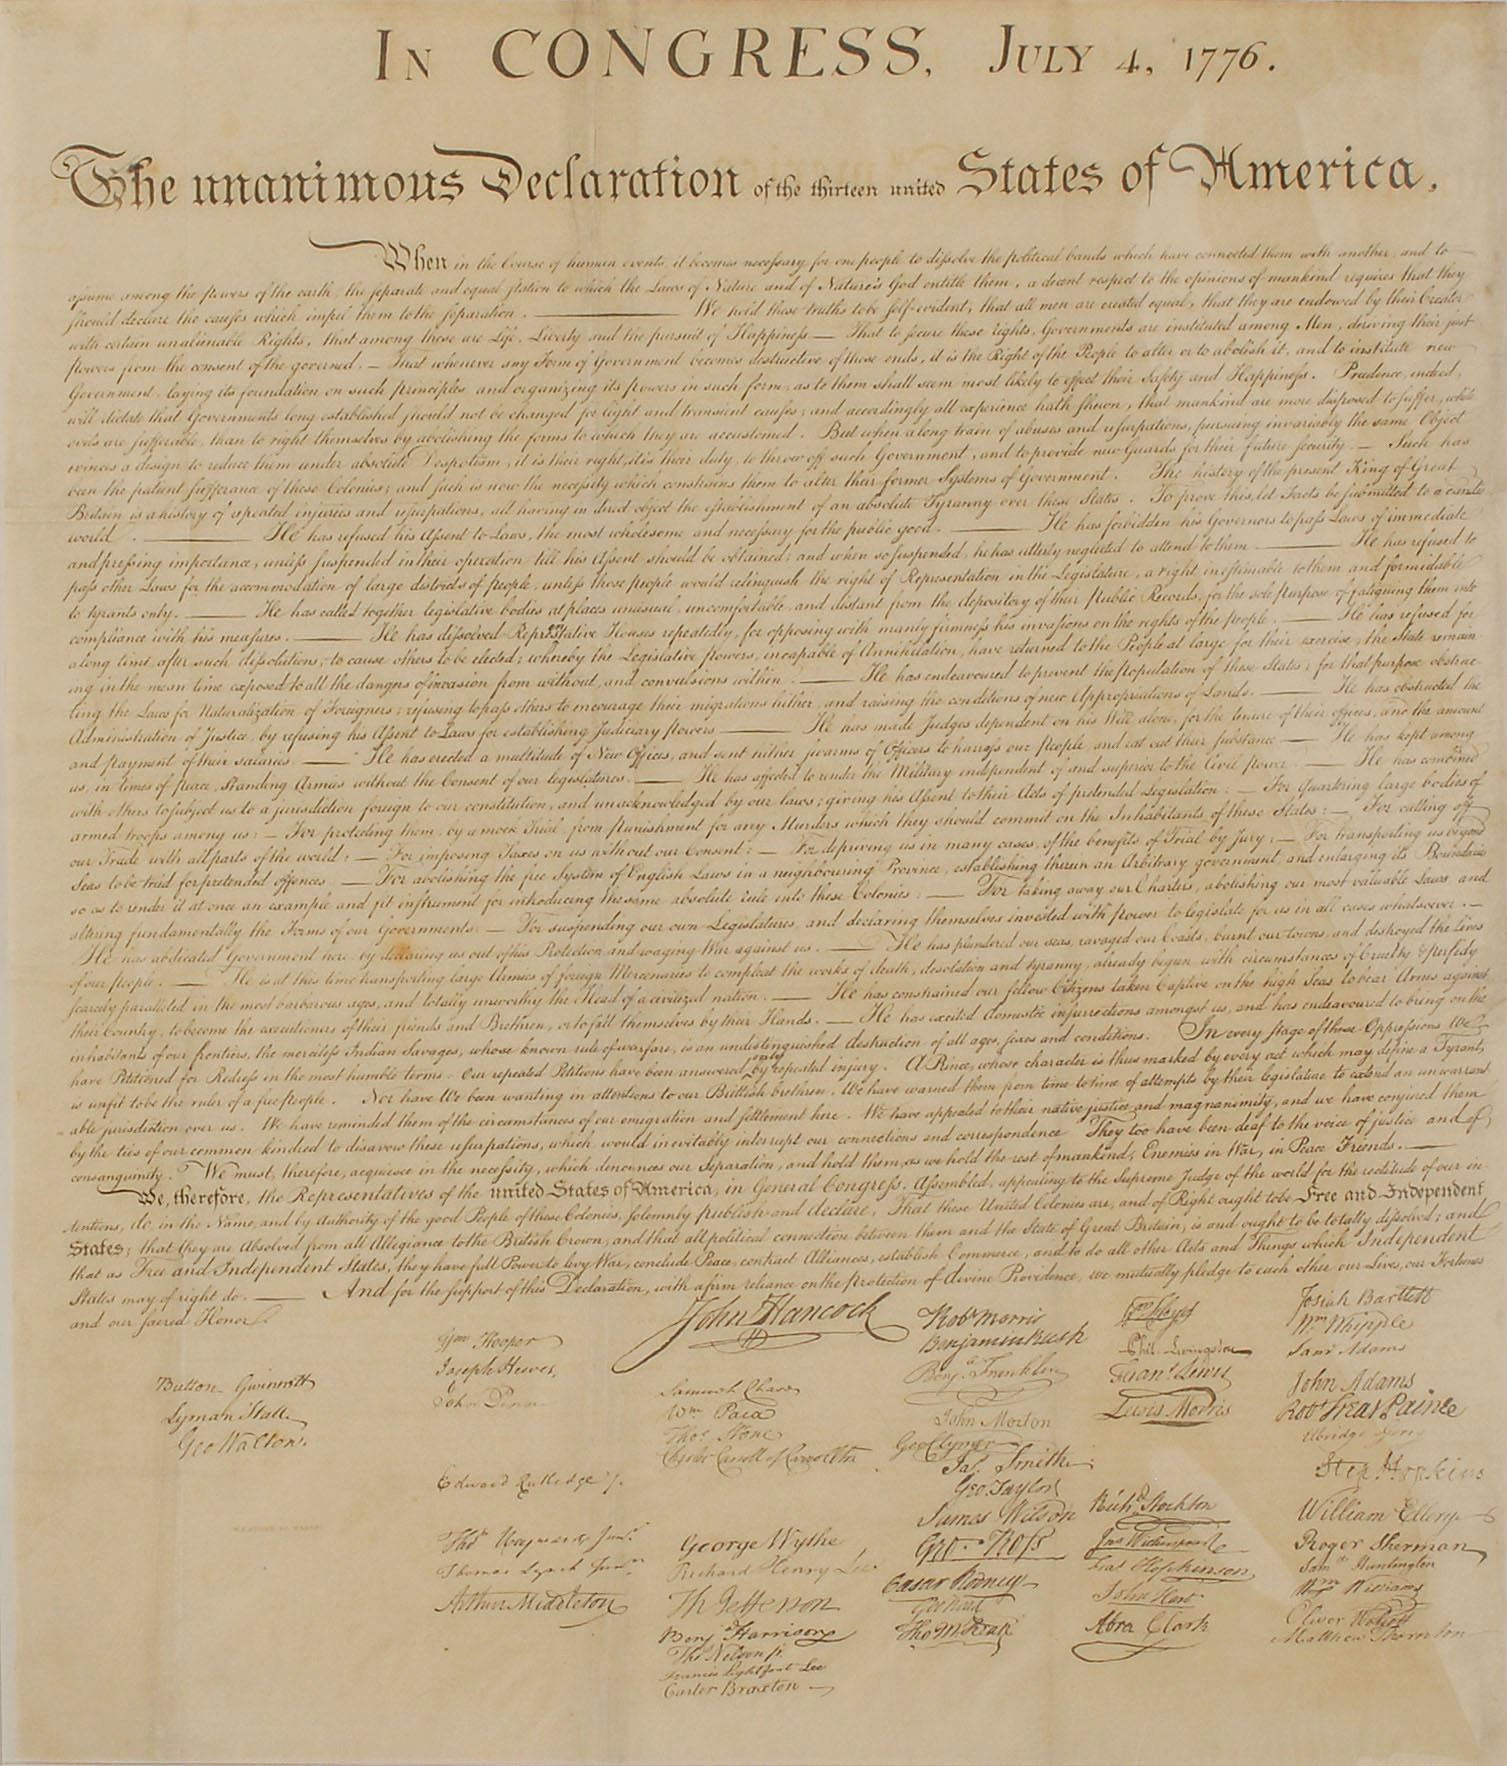 In CONGRESS, July 4, 1776.
The unanimous Declaration of the thirteen united States of America,
When in the Course of human events, it becomes necessary for one people to dissolve the political bands which have connected them with another, and to
assume among the powers of the earth, the separate and equal station to which the Laws of Nature and of Nature's God entitle them, a decent respect to the opinions of mankind requires that they
should declare the causes which impel them to the separation. — We hold these truths to be self-evident, that all men are created equal, that they are endowed by their Creator
with certain unalienable Rights, that among these are Life, Liberty and the pursuit of Happiness — That to secure these rights, Governments are instituted among Men, deriving their just
powers from the consent of the governed, — That whenever any Form of Government becomes destructive of these ends, it is the Right of the People to alter or to abolish it, and to institute new
Government, laying its foundation on such principles and organizing its powers in such form, as to them shall seem most likely to effect their Safety and Happiness. Prudence, indeed,
will dictate that Governments long established should not be changed for light and transient causes; and accordingly all experience hath shewn, that mankind are more disposed to suffer, while
evils are sufferable, than to right themselves by abolishing the forms to which they are accustomed. But when a long train of abuses and usurpations, pursuing invariably the same Object
evinces a design to reduce them under absolute Despotism, it is their right, it is their duty, to throw off such Government, and to provide new Guards for their future security. — Such has
been the patient sufferance of these Colonies; and such is now the necessity which constrains them to alter their former Systems of Government. The history of the present King of Great
Britain is a history of repeated injuries and usurpations, all having in direct object the establishment of an absolute Tyranny over these States. To prove this, let Facts be submitted to a candid
world. — He has refused his Assent to Laws, the most wholesome and necessary for the public good. — He has forbidden his Governors to pass Laws of immediate
and pressing importance, unless suspended in their operation till his Assent should be obtained; and when so suspended, he has utterly neglected to attend to them. — He has refused to
pass other Laws for the accommodation of large districts of people, unless those people would relinquish the right of Representation in the Legislature, a right inestimable to them and formidable
to tyrants only. — He has called together legislative bodies at places unusual, uncomfortable, and distant from the depository of their Public Records, for the sole purpose of fatiguing them into
compliance with his measures. — He has dissolved Representative Houses repeatedly, for opposing with manly firmness his invasions on the rights of the people. — He has refused for
a long time, after such dissolutions, to cause others to be elected; whereby the Legislative powers, incapable of Annihilation, have returned to the People at large for their exercise; the State remain-
ing in the mean time exposed to all the dangers of invasion from without, and convulsions within. — He has endeavoured to prevent the population of these States; for that purpose obstruc-
ting the Laws for Naturalization of Foreigners; refusing to pass others to encourage their migrations hither, and raising the conditions of new Appropriations of Lands. — He has obstructed the
Administration of Justice, by refusing his Assent to Laws for establishing Judiciary powers. — He has made Judges dependent on his Will alone, for the tenure of their offices, and the amount
and payment of their salaries. — He has erected a multitude of New Offices, and sent hither swarms of Officers to harrass our People, and eat out their substance. — He has kept among
us, in times of peace, Standing Armies without the Consent of our legislatures. — He has affected to render the Military independent of and superior to the Civil power. — He has combined
with others to subject us to a jurisdiction foreign to our constitution, and unacknowledged by our laws; giving his Assent to their Acts of pretended Legislation: — For Quartering large bodies of
armed troops among us: — For protecting them, by a mock Trial, from punishment for any Murders which they should commit on the Inhabitants of these States: — For cutting off
our Trade with all parts of the world: — For imposing Taxes on us without our Consent: — For depriving us in many cases, of the benefits of Trial by Jury: — For transporting us beyond
Seas to be tried for pretended offences — For abolishing the free System of English Laws in a neighbouring Province, establishing therein an Arbitrary government, and enlarging its Boundaries
so as to render it at once an example and fit instrument for introducing the same absolute rule into these Colonies: — For taking away our Charters, abolishing our most valuable Laws, and
altering fundamentally the Forms of our Governments: — For suspending our own Legislatures, and declaring themselves invested with power to legislate for us in all cases whatsoever. —
He has abdicated Government here, by declaring us out of his Protection and waging War against us. — He has plundered our seas, ravaged our Coasts, burnt our towns, and destroyed the lives
of our people. — He is at this time transporting large Armies of foreign Mercenaries to compleat the works of death, desolation and tyranny, already begun with circumstances of Cruelty & perfidy
scarcely paralleled in the most barbarous ages, and totally unworthy the Head of a civilized nation. — He has constrained our fellow Citizens taken Captive on the high Seas to bear Arms against
their Country, to become the executioners of their friends and Brethren, or to fall themselves by their Hands. — He has excited domestic insurrections amongst us, and has endeavoured to bring on the
inhabitants of our frontiers, the merciless Indian Savages, whose known rule of warfare, is an undistinguished destruction of all ages, sexes and conditions. In every stage of these Oppressions We
have Petitioned for Redress in the most humble terms: Our repeated Petitions have been answered only by repeated injury. A Prince, whose character is thus marked by every act which may define a Tyrant,
is unfit to be the ruler of a free People. Nor have We been wanting in attentions to our Brittish brethren. We have warned them from time to time of attempts by their legislature to extend an unwarrant-
able jurisdiction over us. We have reminded them of the circumstances of our emigration and settlement here. We have appealed to their native justice and magnanimity, and we have conjured them
by the ties of our common kindred to disavow these usurpations, which, would inevitably interrupt our connections and correspondence They too have been deaf to the voice of justice and of
consanguinity. We must, therefore, acquiesce in the necessity, which denounces our Separation, and hold them, as we hold the rest of mankind, Enemies in War, in Peace Friends. —
We, therefore, the Representatives of the united States of America, in General Congress, Assembled, appealing to the Supreme Judge of the world for the rectitude of our in-
tentions, do, in the Name, and by Authority of the good People of these Colonies, solemnly publish and declare, That these United Colonies are, and of Right ought to be Free and Independent
States; that they are Absolved from all Allegiance to the British Crown, and that all political connection between them and the State of Great Britain, is and ought to be totally dissolved; and
that as Free and Independent States, they have full Power to levy War, conclude Peace, contract Alliances, establish Commerce, and to do all other Acts and Things which Independent
States may of right do. — And for the support of this Declaration, with a firm reliance on the protection of divine Providence, we mutually pledge to each other our Lives, our Fortunes
and our sacred Honor.
Button Gwinnett
Lyman Hall
Geo Walton.
Wm Hooper
Joseph Hewes,
John Penn
Edward Rutledge /.
Thos Heyward Junr.
Thomas Lynch Junr.
Arthur Middleton
John Hancock
Samuel Chase
Wm Paca
Thos Stone
Charles Carroll of Carrollton
George Wythe
Richard Henry Lee
Th Jefferson
Benj Harrison
Thos Nelson jr.
Francis Lightfoot Lee
Carter Braxton
Robt Morris
Benjamin Rush
Benj. Franklin
John Morton
Geo Clymer
Jas. Smith
Geo. Taylor
James Wilson
Geo. Ross
Caesar Rodney
Geo Read
Tho M:Kean
Wm Floyd
Phil. Livingston
Frans. Lewis
Lewis Morris
Richd. Stockton
Jno Witherspoon
Fras. Hopkinson
John Hart
Abra Clark
Josiah Bartlett
Wm Whipple
Saml Adams
John Adams
Robt Treat Paine
Elbridge Gerry
Step Hopkins
William Ellery
Roger Sherman
Saml Huntington
Wm Williams
Oliver Wolcott
Matthew Thornton